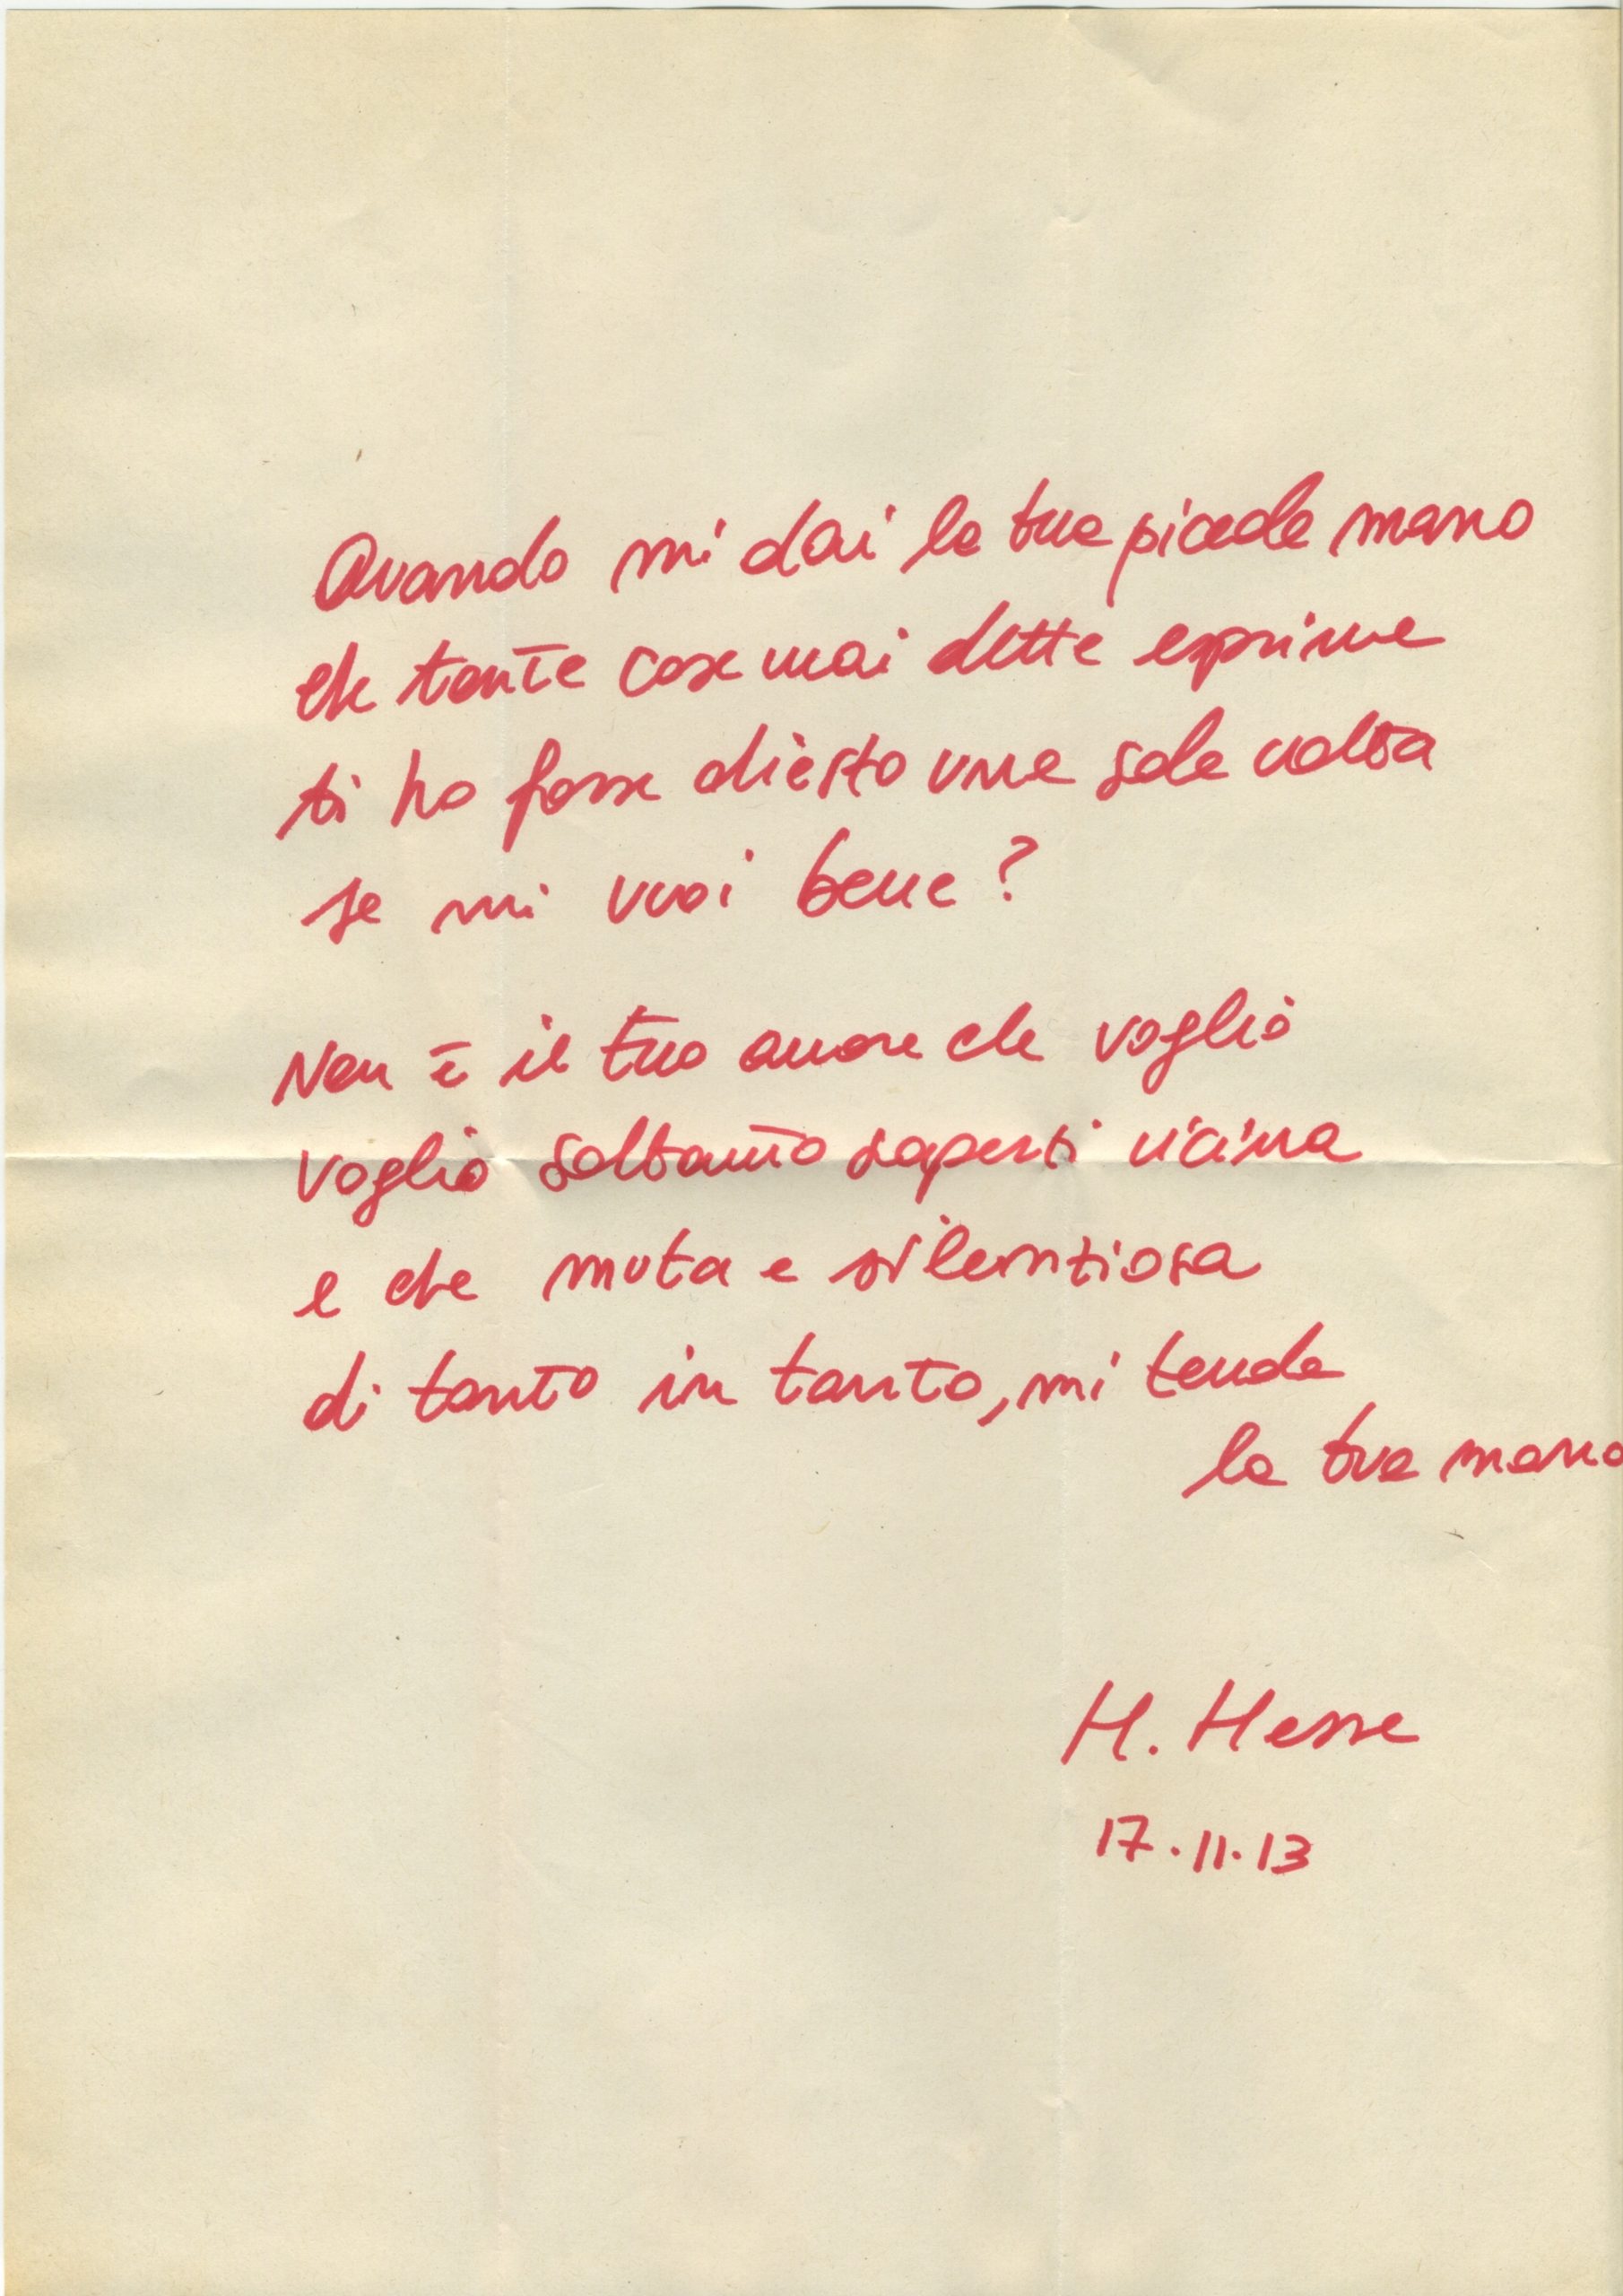 Quando mi dai la tua piccola mano
che tante cose mai dette esprime
ti ho forse chiesto una sola volta
se mi vuoi bene?
Non è il tuo amore che voglio
voglio soltanto saperti vicina
e che muta e silenziosa
di tanto in tanto, mi tenda
la tua mano
H. Hesse
17.11.13